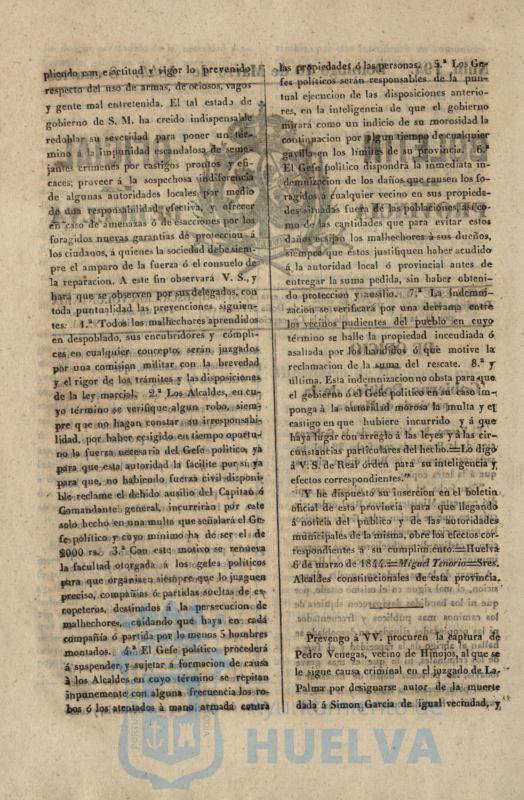 pliendo con exactitud y vigor lo prevenido
respecto del uso de armas, de ociosos, vagos
y gente mal entretenida. El tal estado de
gobierno de S. M. ha creido indispensable
redoblar su severidad para poner un tér-
mino á la impunidad escandalosa de seme-
jantes crímenes por castigos prontos y efi-
caces; proveer á la sospechosa indiferencia
de algunas autoridades locales por medio
de una responsabilidad efectiva, y ofrecer
en caso de amenazas ó de esacciones por los
foragidos nuevas garantías de proteccion á
los ciudanos, á quienes la sociedad debe siem-
pre el amparo de la fuerza ó el consuelo de
la reparacion. A este fin observará V. S., y
hará que se observen por sus delegados, con
toda puntualidad las prevenciones siguien-
tes: 1.ª Todos los malhechores aprendidos
en despoblado, sus encubridores y cómpli-
ces en cualquier concepto, serán juzgados
por una comision militar con la brevedad
y el rigor de los trámites y las disposiciones
de la ley marcial. 2.ª Los Alcaldes, en cu-
yo término se verifique algun robo, siem-
pre que no hagan constar su irresponsabi-
lidad, por haber ecsigido en tiempo oportu-
no la fuerza necesaria del Gefe político, ya
para que esta autoridad la facilite por sí, ya
para que, no habiendo fuerza civil disponi-
ble reclame el debido ausilio del Capitan ó
Comandante general, incurrirán por este
solo hecho en una multa que señalará el Ge-
fe político y cuyo mínimo ha de ser el de
2000 rs. 3.ª Con este motivo se renueva
la facultad otorgada á los gefes políticos
para que organisen siempre que lo juzguen
preciso, compañías ó partidas sueltas de es-
copeteros, destinados á la persecucion de
malhechores, cuidando que haya en cada
compañía ó partida por lo menos 5 hombres
montados. 4.ª El Gefe político procederá
á suspender y sujetar á formacion de causa
á los Alcaldes en cuyo término se repitan
inpunemente con alguna frecuencia los ro-
bos ó los atentados á mano armada contra
las propiedades ó las personas. 5.ª Los Ge-
fes políticos serán responsables de la pun-
tual ejecucion de las disposiciones anterio-
res, en la inteligencia de que el gobierno
mirará como un indicio de su morosidad la
continuacion por algun tiempo de cualquier
gavilla en los límites de su provincia. 6.ª
El Gefe político dispondrá la inmediata in-
demnizacion de los daños que causen los fo-
ragidos á cualquier vecino en sus propieda-
des situadas fuera de las poblaciones, así co-
mo de las cantidades que para evitar estos
daños ecsijan los malhechores á sus dueños,
siempre que éstos justifiquen haber acudido
á la autoridad local ó provincial antes de
entregar la suma pedida, sin haber obteni-
do proteccion y ausilio. 7.ª La indemni-
zacion se verificará por una derrama entre
los vecinos pudientes del pueblo en cuyo
término se halle la propiedad incendiada ó
asaltada por los bandidos ó que motive la
reclamacion de la suma del rescate. 8.ª y
última. Esta indemnizacion no obsta para que
el gobierno ó el Gefe político en su caso im-
ponga á la autoridad morosa la multa y el
castigo en que hubiere incurrido y á que
haya lugar con arreglo á las leyes y á las cir-
cunstancias particulares del hecho.=Lo digo
á V. S. de Real órden para su inteligencia y
efectos correspondientes."
Y he dispuesto su insercion en el boletin
oficial de esta provincia para que llegando
á noticia del público y de las autoridades
municipales de la misma, obre los efectos cor-
respondientes á su cumplimiento.=Huelva
6 de marzo de 1844.=Miguel Tenorio=Sres.
Alcaldes constitucionales de esta provincia.
Prevengo á VV. procuren la captura de
Pedro Venegas, vecino de Hinojos, al que se
le sigue causa criminal en el juzgado de La
Palma por designarse autor de la muerte
dada á Simon Garcia de igual vecindad, y
Ayuntamiento de
HUELVA